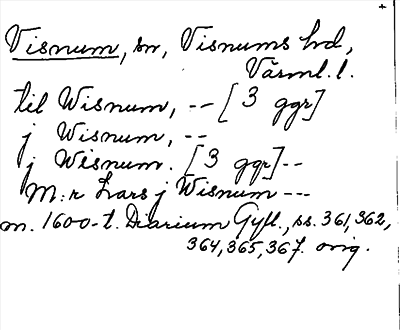 Visnum, sn, Visnums hd,
Värml. l.
til Wisnum, -- [3 ggr]
j Wisnum, --
j Wisnum. [3 ggr] --
M:r Lars j Wisnum ---
m. 1600-t. Diarium Gyll., ss. 361, 362,
364, 365, 367. orig.